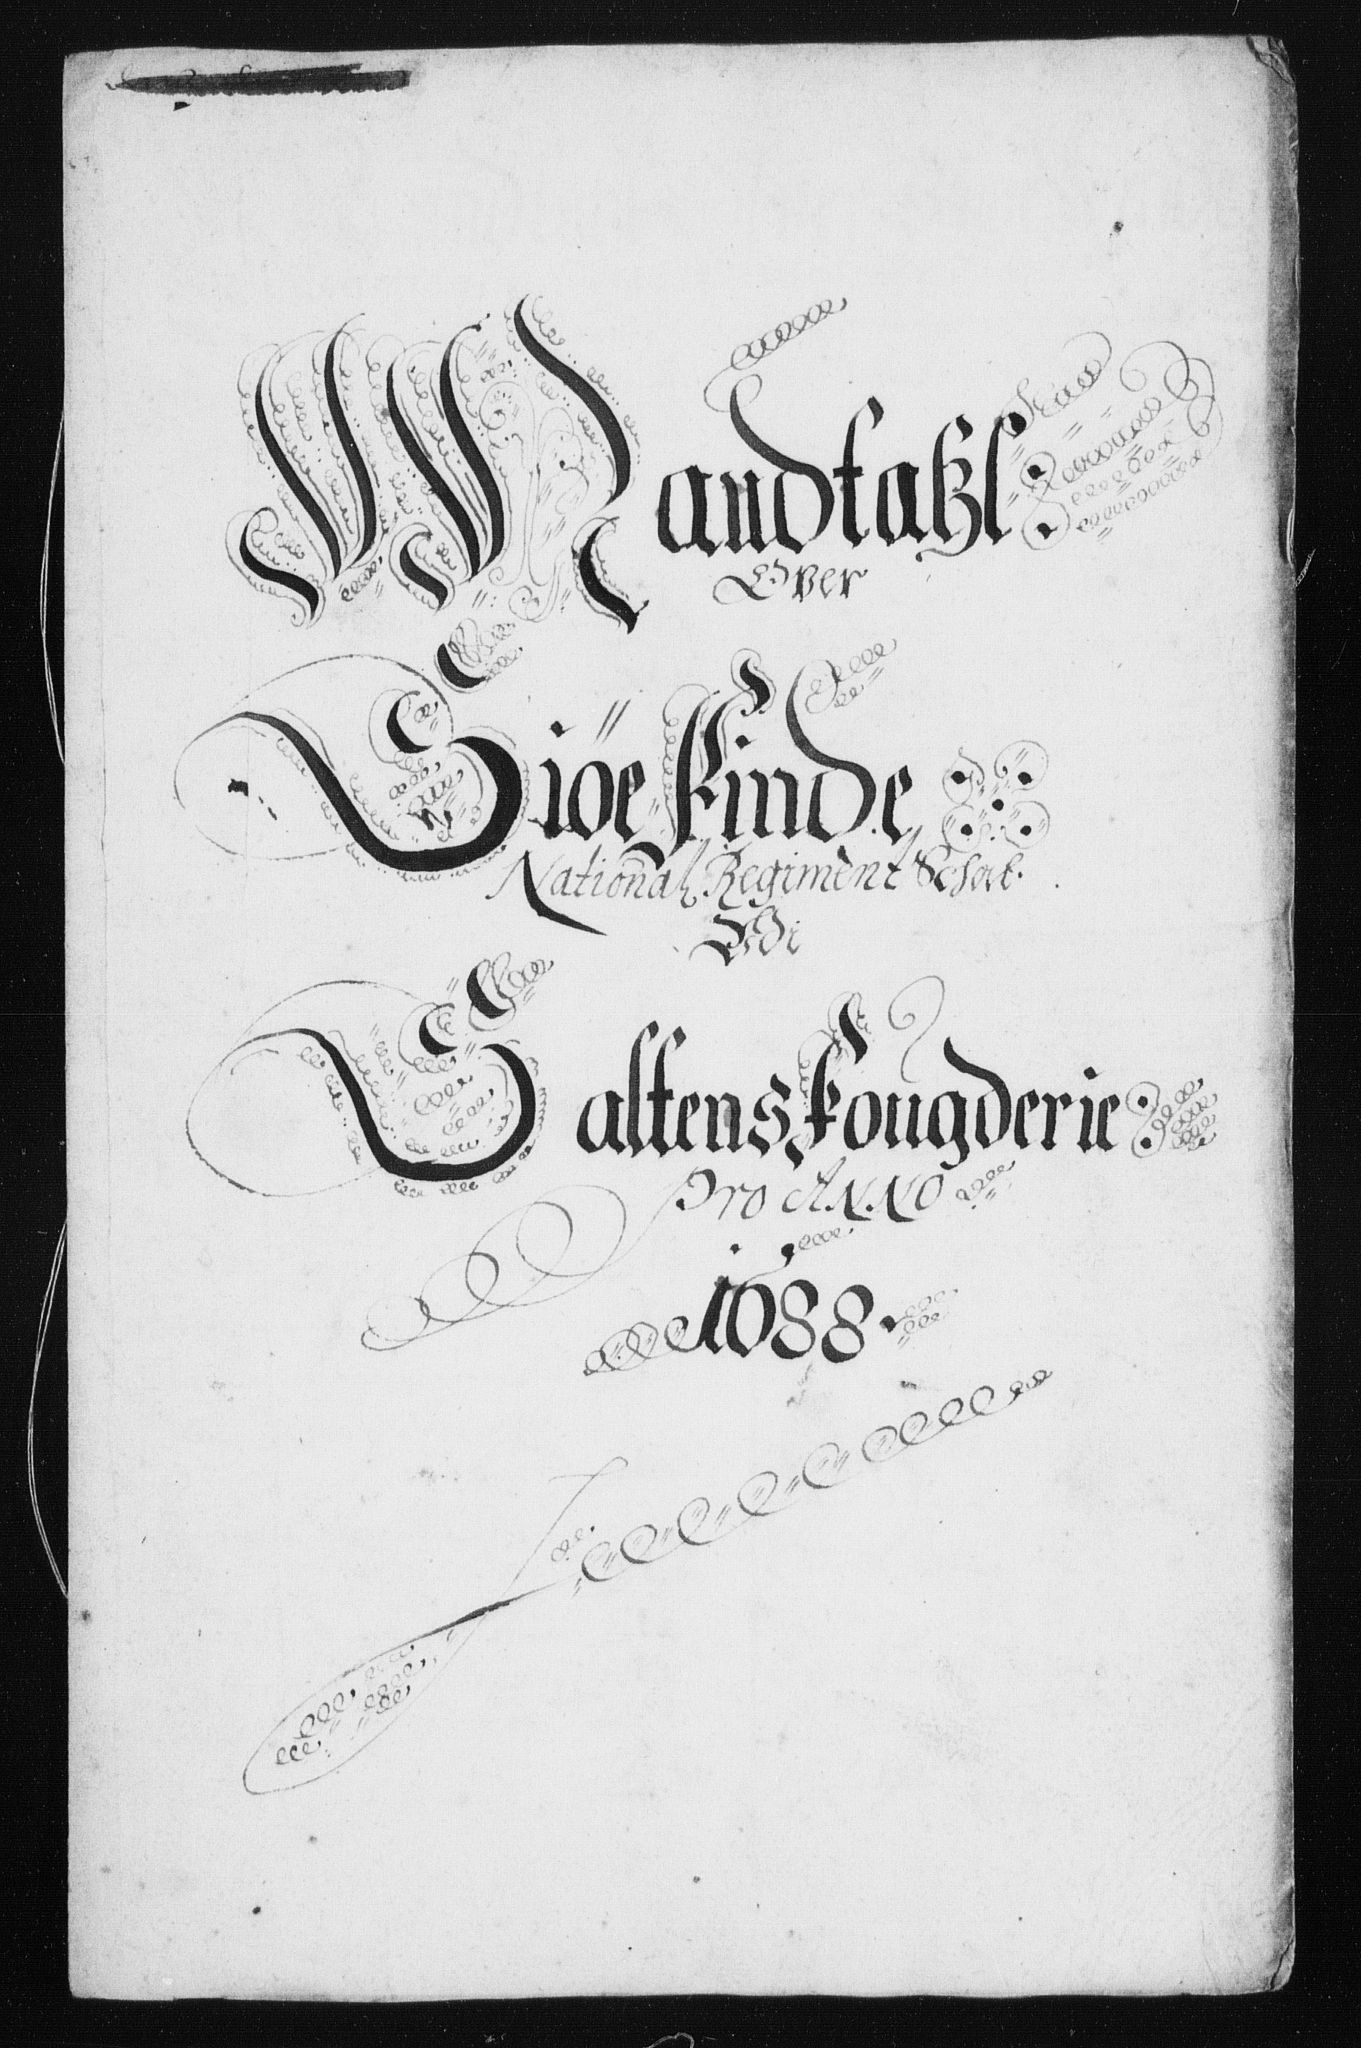 Mandtahl
Over
Siöe Finde
National Regiment Schat.
Udi
Saltens Fougderie
Pro ANNO
1688.